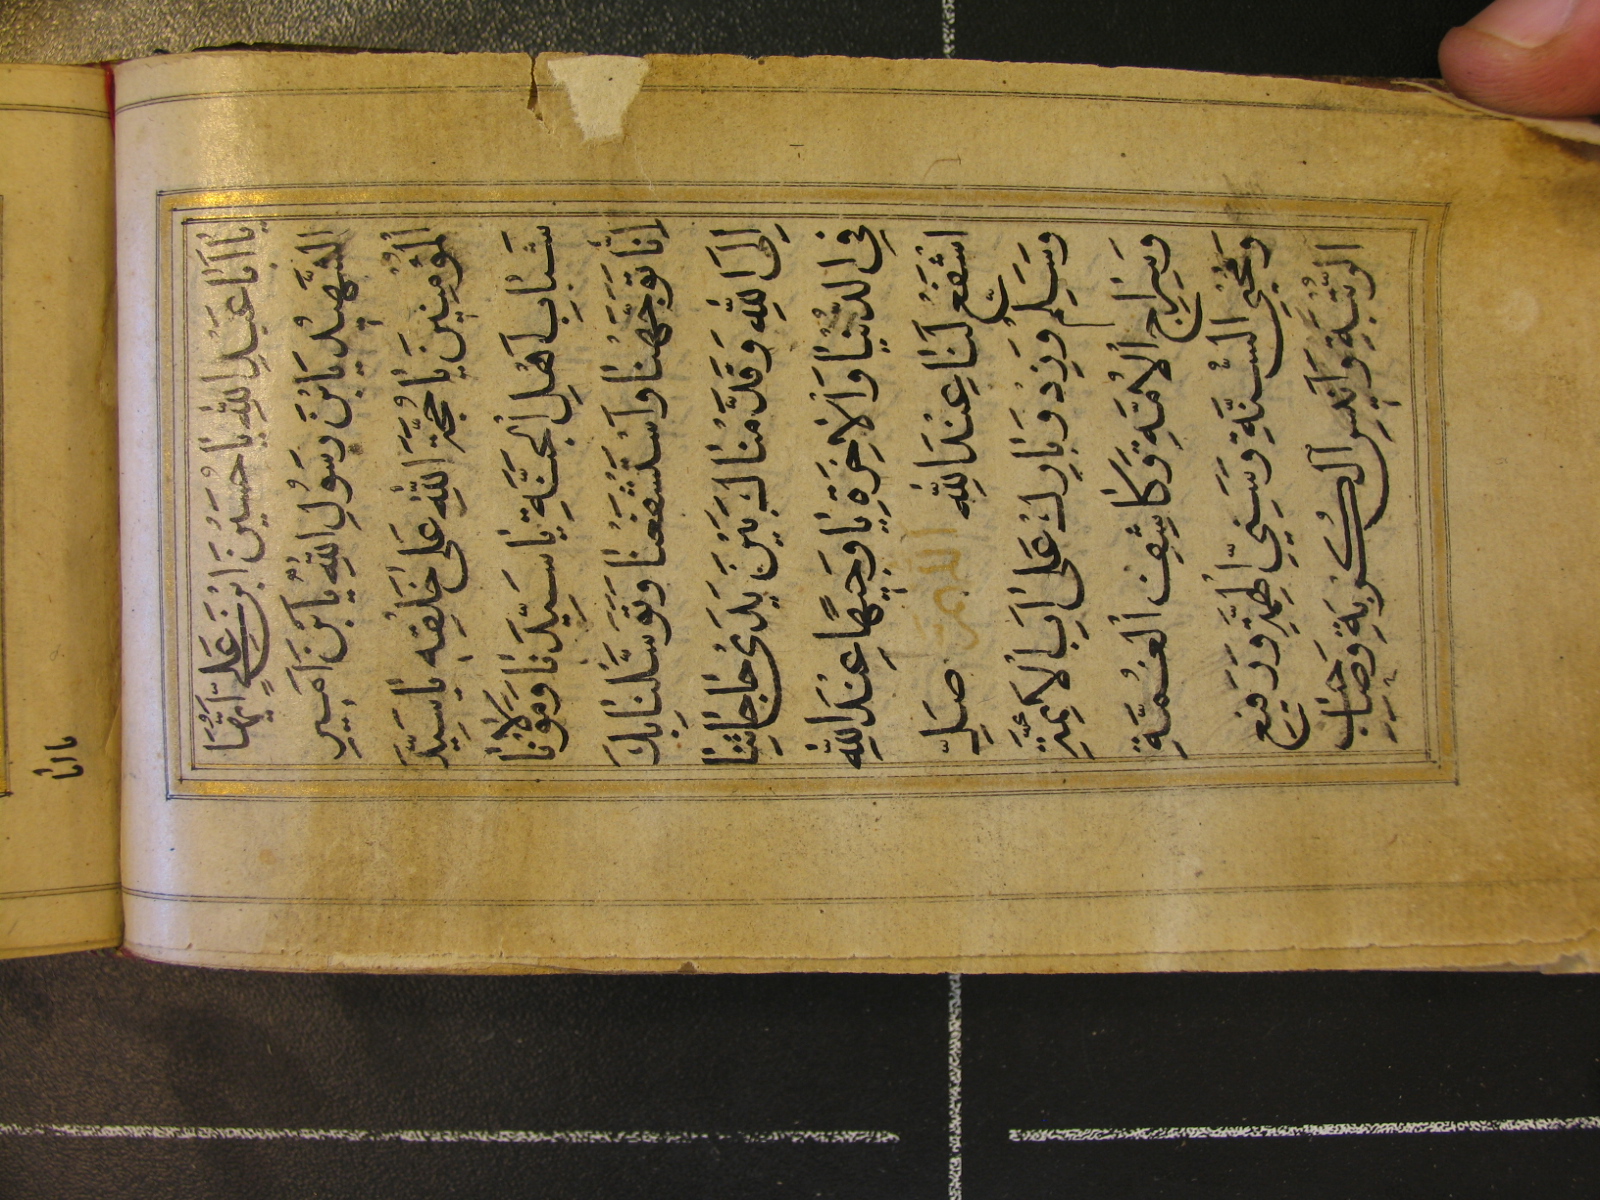 يا ابا
يٰا اَبٰا عَبْدِ اللّٰهِ يٰا حُسَيْنَ ابْنَ عَلِيٍّ اَيُّهَا
الشَّهٖيدُ يَا بْنَ رَسُولِ اللّٰهِ يَا بْنَ اَمٖيرِ
الْمُؤْمِنٖينَ يٰا حُجَّةَ اللّٰهِ عَلٰى خَلْقِهٖ يٰا سَيِّدَ
شَبٰابِ اَهْلِ الْجَنَّةِ يٰا سَيِّدَنٰا وَمَوْلٰانٰا
اِنّٰا تَوَجَّهْنٰا وَاسْتَشْفَعْنٰا وَتَوَسَّلْنٰا بِكَ
اِلَى اللّٰهِ وَقَدَّمْنٰاكَ بَيْنَ يَدَىْ حٰاجٰاتِنٰا
فِي الدُّنْيٰا وَالْاٰخِرَةِ يٰا وَجٖيهًا عِنْدَ اللّٰهِ
اشْفَعْ لَنٰا عِنْدَ اللّٰهِ اَللّٰهُمَّ صَلِّ
وَسَلِّمْ وَزِدْ وَبٰارِكْ عَلٰى اَبِ الْاَئِمَّةِ
وَسِرٰاجِ الْاُمَّةِ وَكٰاشِفِ الْغُمَّةِ
وَمُحْيِي السُّنَّةِ وَسَنِيِّ الْهِمَّةِ وَرَفٖيعِ
الرُّتْبَةِ وَاَنٖيسِ الْكُرْبَةِ وَصٰاحِبِ